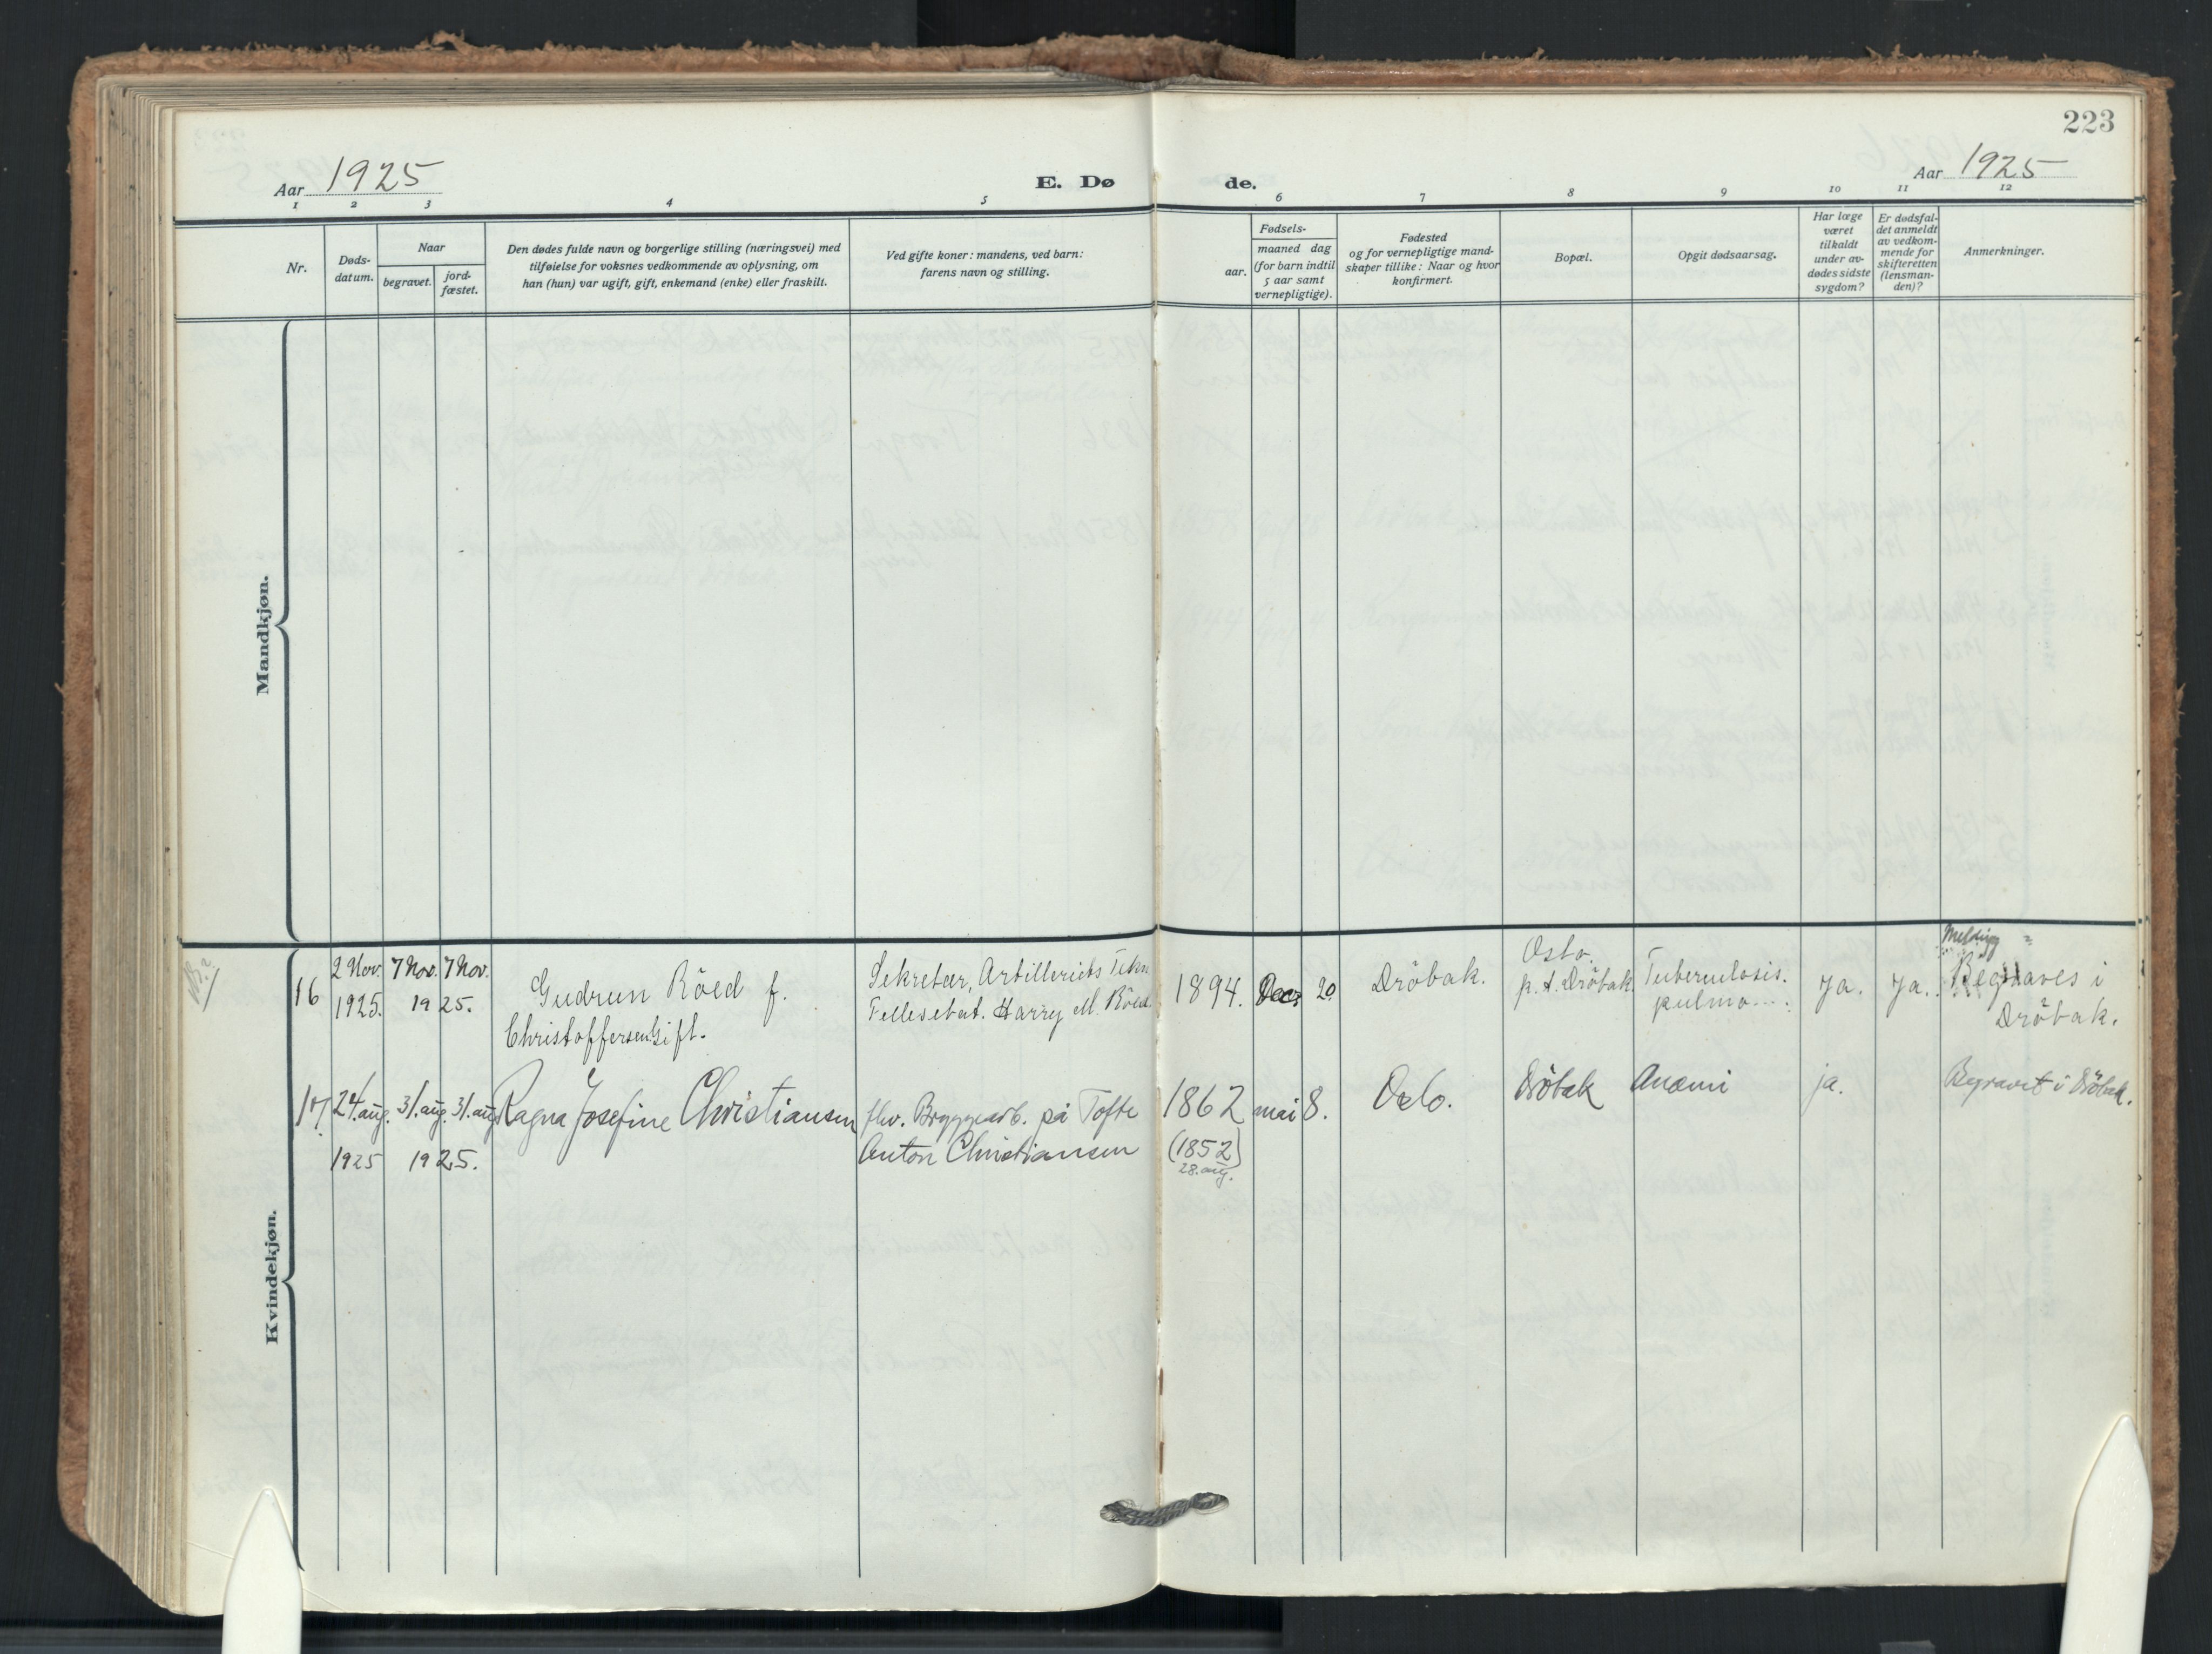 223
Aar 1925
E. Dø
de.
Aar 1925
1 2 3 4 5 6 7 8 9 10 11 12
Nr.
Døds-
datum.
Naar
begravet.
jord-
fæstet.
Den dødes fulde navn og borgerlige stilling (næringsvei) med
tilføielse for voksnes vedkommende av oplysning, om
han (hun) var ugift, gift, enkemand (enke) eller fraskilt.
Ved gifte koner: mandens, ved barn:
farens navn og stilling.
Fødsels-
aar.
maaned dag
(for barn indtil
5 aar samt
vernepligtige).
Fødested
og for vernepligtige mand-
skaper tillike: Naar og hvor
konfirmert.
Bopæl.
Opgit dødsaarsag.
Har læge
været
tilkaldt
under av-
dødes sidste
sygdom?
Er dødsfal-
det anmeldt
av vedkom-
mende for
skifteretten
(lensman-
den)?
Anmerkninger.
Mandkjøn.
Kvindekjøn.
16
2 Nov.
1925.
7 Nov. 7 Nov.
1925.
Gudrun Röed f.
Christoffersen. Gift.
Sekretær, Artilleriets Tekn.
Harry M. Röed
1894. Dec. 20.
Dröbak.
Oslo.
p.t. Dröbak.
Tuberculosis.
pulmo...
Ja.
Ja.
Begraves i
Dröbak.
17.
24. aug.
1925
31. aug. 31. aug
1925.
Ragna Josefine Christiansen
fhv. Bryggearb. på Tofte
Anton Christiansen
1862 mai 8.
(1852)
28. aug.
Oslo.
Dröbak
Anæmi
ja.
Begravet i Dröbak.